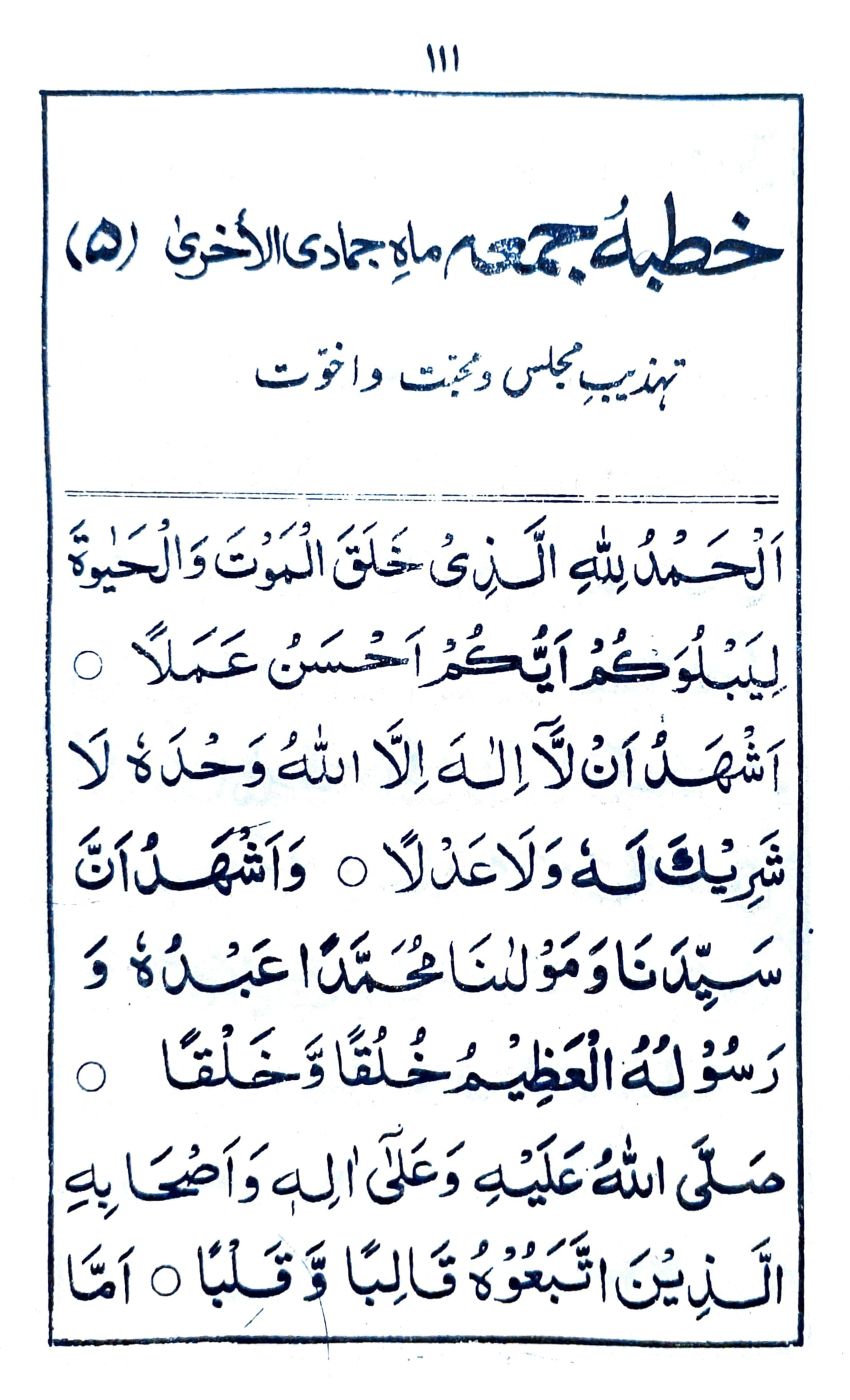 ۱۱۱
خطبۂ جمعہ ماہِ جمادی الأخریٰ (۵)
تہذیبِ مجلس و محبّت و اخوّت
اَلْحَمْدُ لِلّٰهِ الَّذِیْ خَلَقَ الْمَوْتَ وَالْحَیٰوةَ
لِیَبْلُوَكُمْ اَیُّكُمْ اَحْسَنُ عَمَلًا ○
اَشْهَدُ اَنْ لَّاۤ اِلٰهَ اِلَّا اللّٰهُ وَحْدَهٗ لَا
شَرِیْكَ لَهٗ وَلَا عَدْلًا ○ وَاَشْهَدُ اَنَّ
سَیِّدَنَا وَمَوْلٰىنَا مُحَمَّدًا عَبْدُهٗ وَ
رَسُوْلُهُ الْعَظِیْمُ خُلُقًا وَّخَلْقًا ○
صَلَّی اللّٰهُ عَلَیْهِ وَعَلٰۤی اٰلِهٖ وَاَصْحَابِهِ
الَّذِیْنَ اتَّبَعُوْهُ قَالِبًا وَّقَلْبًا ○ اَمَّا